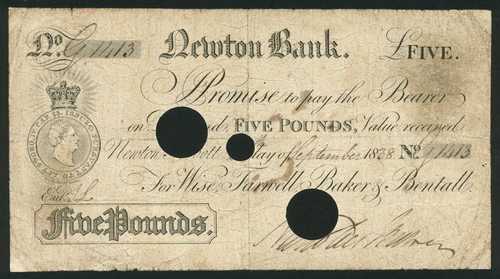 No. G1413 Newton Bank. £FIVE.
I Promise to pay the Bearer
on D d FIVE POUNDS, Value received
Newton ott day of September 1838 No. G1413
For Wise, Farwell, Baker & Bentall.
Entd.
Five Pounds.